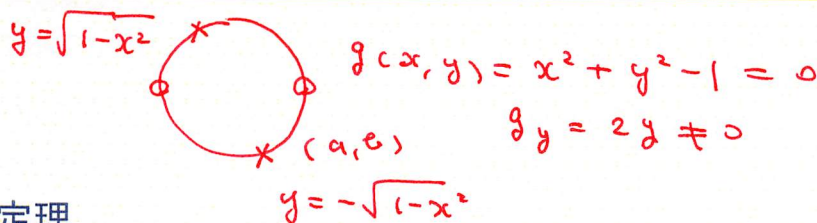 y = √1-x²
g(x, y) = x² + y² - 1 = 0
g_y = 2y ≠ 0
(a, b)
y = -√1-x²
定理